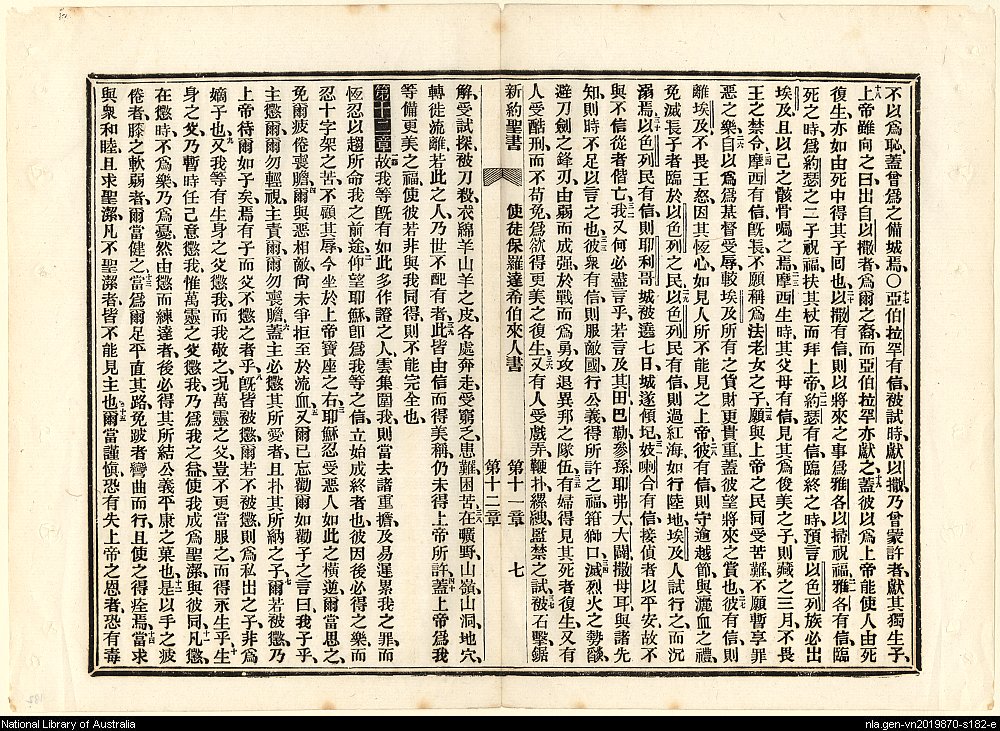 不以爲恥蓋曾爲之備城焉○亞伯拉罕有信被試時獻以撒乃曾蒙許者獻其獨生子、
上帝雖向之曰出自以撒者爲爾之裔而亞伯拉罕亦獻之蓋彼以爲上帝能使人由死
復生亦如由死中得其子同也以撒有信則以將來之事爲雅各以掃祝福雅各有信臨
死之時爲約瑟之二子祝福扶其杖而拜上帝約瑟有信臨終之時預言以色列族必出
埃及且以己之骸骨囑之焉摩西生時其父母有信見其爲俊美之子則藏之三月不畏
王之禁令摩西有信旣長不願稱爲法老女之子願與上帝之民同受苦難不願暫享罪
惡之樂自以爲爲基督受辱較埃及所有之貨財更貴重蓋彼望將來之賞也彼有信則
離埃及不畏王怒因其恆心如見人所不能見之上帝彼有信則守逾越節與灑血之禮
免滅長子者臨於以色列之民以色列民有信則過紅海如行陸地埃及人試行之而沉
溺焉以色列民有信則耶利哥城被遶七日城遂傾圮妓喇合有信接偵者以平安故不
與不信從者偕亡我又何必盡言乎若言及其田巴勒參孫耶弗大大闢撒母耳與諸先
知則時不足以言之也彼衆有信則服敵國行公義得所許之福箝獅口滅烈火之勢燄
避刀劍之鋒刃由弱而成强於戰而爲勇攻退異邦之隊伍有婦得見其死者復生又有
人受酷刑而不苟免爲欲得更美之復生又有人受戲弄鞭扑縲絏監禁之試被石擊鋸
新約聖書 使徒保羅達希伯來人書 第十一章 七
第十二章
解受試探被刀殺衣綿羊山羊之皮各處奔走受窮乏患難困苦在曠野山嶺山洞地穴、
轉徙流離若此之人乃世不配有者此皆由信而得美稱仍未得上帝所許蓋上帝爲我
等備更美之福使彼若非與我同得則不能完全也
第十二章故我等旣有如此多作證之人雲集圍我則當去諸重擔及易遲累我之罪而
恆忍以趨所命我之前途仰望耶穌卽爲我等之信立始成終者也彼因後必得之樂而
忍十字架之苦不顧其辱今坐於上帝寶座之右耶穌忍受惡人如此之橫逆爾當思之、
免爾疲倦喪膽爾與惡相敵尙未爭拒至於流血又爾已忘勸爾如勸子之言曰我子乎、
主懲爾爾勿輕視主責爾爾勿喪膽蓋主必懲其所愛者且扑其所納之子爾若被懲乃
上帝待爾如子矣焉有子而父不懲之者乎旣皆被懲爾若不被懲則爲私出之子非爲
嫡子也又我等有生身之父懲我而我敬之况萬靈之父豈不更當服之而得永生乎生
身之父乃暫時任己意懲我惟萬靈之父懲我乃爲我之益使我成爲聖潔與彼同凡懲
在懲時不爲樂乃爲憂然由懲而練達者後必得其所結公義平康之菓也是以手之疲
倦者膝之軟弱者爾當健之當爲爾足平直其路免跛者彎曲而行且使之得痊焉當求
與衆和睦且求聖潔凡不聖潔者皆不能見主也爾當謹慎恐有失上帝之恩者恐有毒
National Library of Australia
nla.gen-vn2019870-s182-e